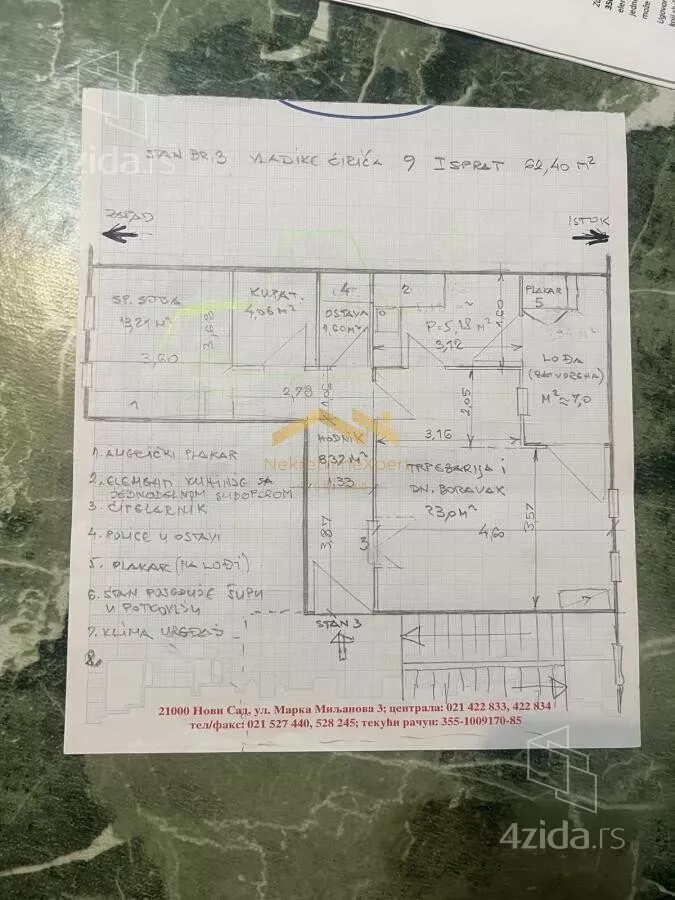 STAN BR. 3 VLADIKE ĆIRIĆA 9 I SPRAT 62,40 m²
ZAPAD
ISTOK
SP. SOBA
13,21 m²
3,60
3,68
1
KUPAT.
4,06 m²
4
OSTAVA
1,60 m²
2
P=5,18 m²
3,12
1,60
PLAKAR
5
LOĐA
(ZATVORENA)
M² ≈ 7,0
2,78
2,05
3,16
HODNIK
8,37 m²
1,33
3,87
3
TRPEZARIJA I
DN. BORAVAK
23,0 m²
4,60
3,57
7
1. AMERIČKI PLAKAR
2. ELEMENTI KUHINJE SA
JEDNODELNOM SUDOPEROM
3. ČIVILARNIK
4. POLICE U OSTAVI
5. PLAKAR (NA LOĐI)
6. STAN POSEDUJE ŠUPU
U POTKROVLJU
7. KLIMA UREĐAJ
8.
STAN 3
21000 Нови Сад, ул. Марка Миљанова 3; централа: 021 422 833, 422 834
тел/факс: 021 527 440, 528 245; текући рачун: 355-1009170-85
4zida.rs
4zida.rs
4zida.rs
Nekretnine Expert